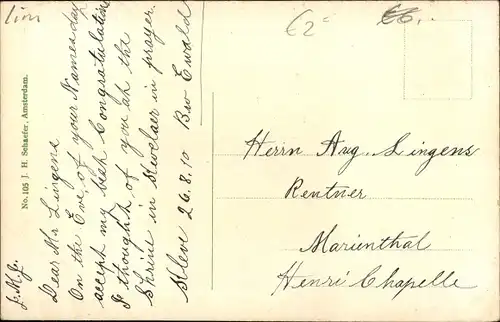 Lim
€2=
€6,-
No. 105 J. H. Schaefer, Amsterdam.
J.M.J.
Dear Mr Lingens
On the Eve of your Namesday
accept my best Congratulations
I thought of you at the
Shrine in Kevelaer in prayer.
Kleve 26.8.10 Brw Ewald
Herrn Aug. Lingens
Rentner
Marienthal
Henri Chapelle